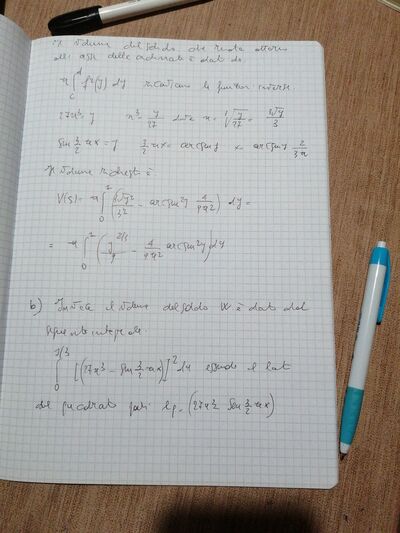 Il volume del solido che ruota attorno
all'asse delle ordinate è dato da
π ∫_c^d f²(y) dy ricaviamo le funzioni inverse.
27x³ = y x³ = y/27 x = ∛(y/27) = ∛y/3
sen 3/2 πx = y 3/2 πx = arcsen y x = arcsen y 2/3π
Il volume richiesto è
V(S) = π ∫_0^1 (∛y²/3² - arcsen²y 4/9π²) dy =
= π ∫_0^1 (y^(2/3)/9 - 4/9π² arcsen²y) dy
b) Invece il volume del solido W è dato dal
seguente integrale.
∫_0^(1/3) [(27x³ - sen 3/2 πx)]² dx essendo il lato
del quadrato pari (27x³ sen 3/2 πx)